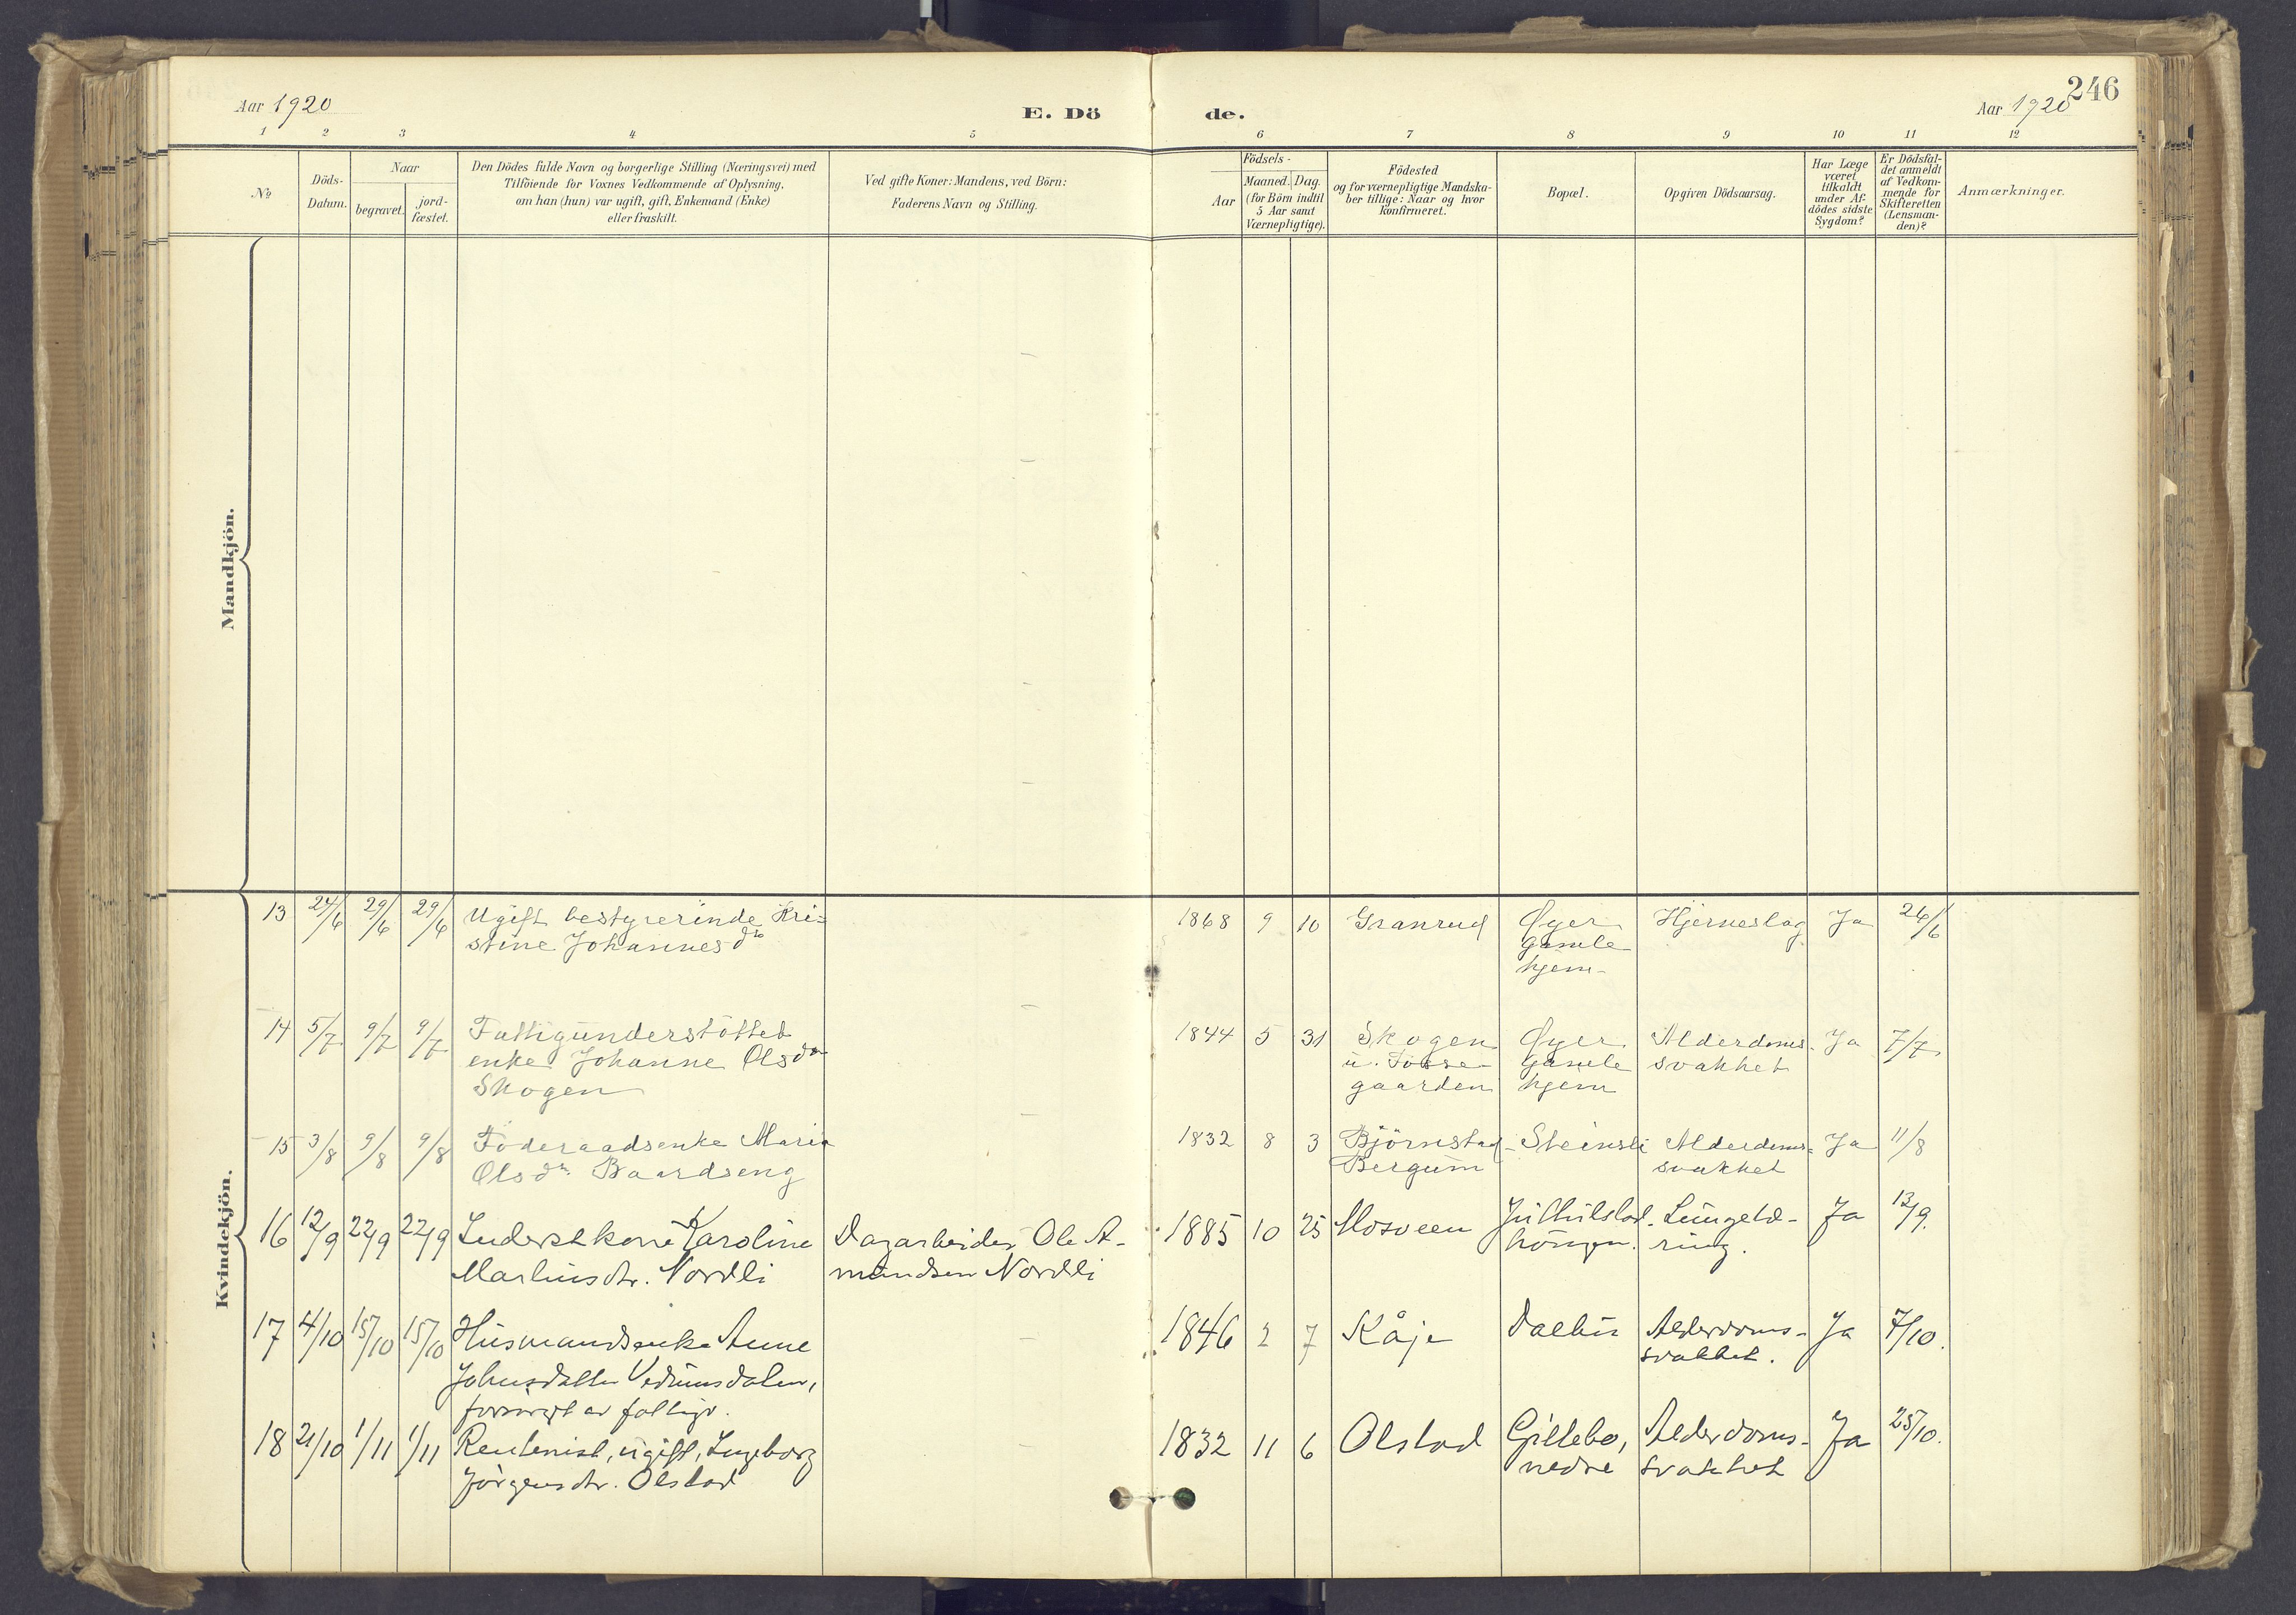 246
Aar 1920
E. Dö
de.
Aar 1920
1 2 3 4 5 6 7 8 9 10 11 12
No
Döds-
Datum.
Naar
begravet.
jord-
fæstet.
Den Dödes fulde Navn og borgerlige Stilling (Næringsvei) med
Tilföiende for Voxnes Vedkommende af Oplysning,
om han (hun) var ugift, gift, Enkemand (Enke)
eller fraskilt.
Ved gifte Koner: Mandens, ved Börn:
Faderens Navn og Stilling.
Födsels-
Aar
Maaned. Dag.
(for Börn indtil
5 Aar samt
Værnepligtige).
Födested
og for værnepligtige Mandska-
ber tillige: Naar og hvor
konfirmeret.
Bopæl.
Opgiven Dödsaarsag.
Har Læge
været
tilkaldt
under Af-
dödes sidste
Sygdom?
Er Dödsfal-
det anmeldt
af Vedkom-
mende for
Skifteretten
(Lensman-
den)?
Anmærkninger.
Mandkjön.
Kvindekjön.
13 24/6 29/6 29/6 Ugift bestyrerinde Kri-
stine Johannesdr
1868 9 10 Granrud
Øyer
gamle
hjem-
Hjerneslag Ja 26/6
14 5/7 9/7 9/7 Fattigunderstöttet
enke Johanne Olsdr
Skogen
1844 5 31 Skogen
u. Fosse-
gaarden
Øyer
gamle
hjem
Alderdoms-
svakhet
Ja 7/7
15 3/8 9/8 9/8 Föderaadsenke Maria
Olsdr. Baardseng
1832 8 3 Björnstad
Bergum
Steinsli
Alderdoms-
svakhet
Ja 11/8
16 12/9 22/9 22/9 Inderstkone Karoline
Marliusdtr. Nordli
Dagarbeider Ole A-
mundsen Nordli
1885 10 25 Mosveen
Lungetæ-
ring.
Ja 13/9.
17 4/10 15/10 15/10 Husmandsenke Anne
Johnsdatter Vedumsdalen,
forsörget av fattigv.
1846 2 7 Kåje
Dalbu
Alderdoms-
svakhet.
Ja 7/10.
18 21/10 1/11 1/11 Rentenist, ugift, Ingeborg
Jörgensdtr. Olstad
1832 11 6 Olstad
Gillebo,
nedre
Alderdoms-
svakhet
Ja 25/10.